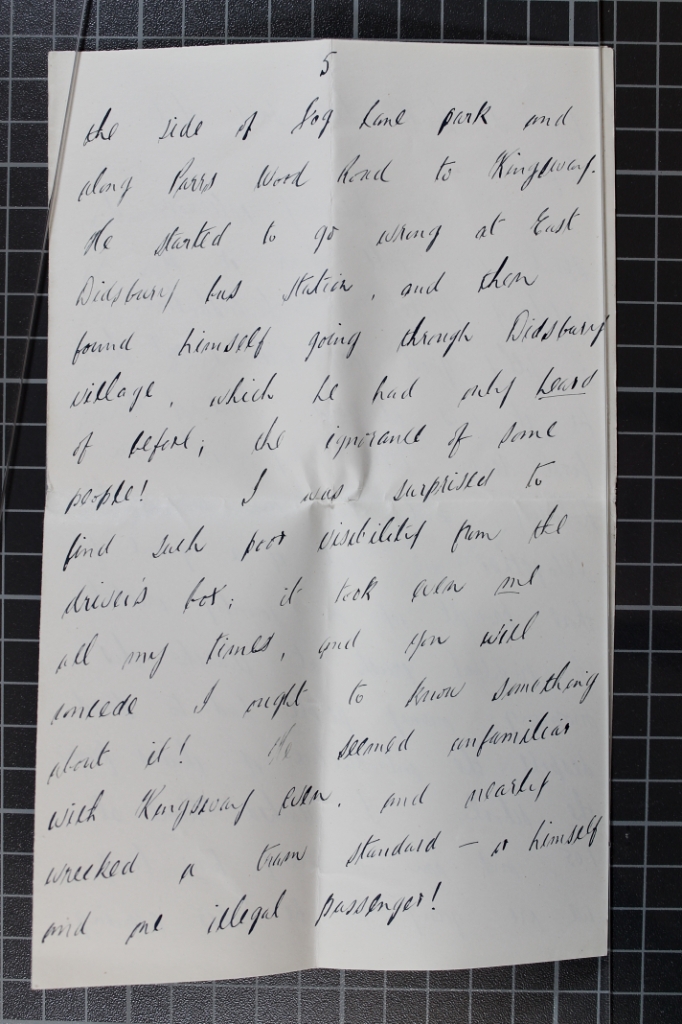 5
the side of Fog Lane park and
along Parrs Wood Road to Kingsway.
He started to go wrong at East
Didsbury bus station, and then
found himself going through Didsbury
village, which he had only heard
of before; the ignorance of some
people! I was surprised to
find such poor visibility from the
driver's box; it took even me
all my times, and you will
concede I ought to know something
about it! He seemed unfamiliar
with Kingsway even, and nearly
wrecked a tram standard — or himself
and one illegal passenger!